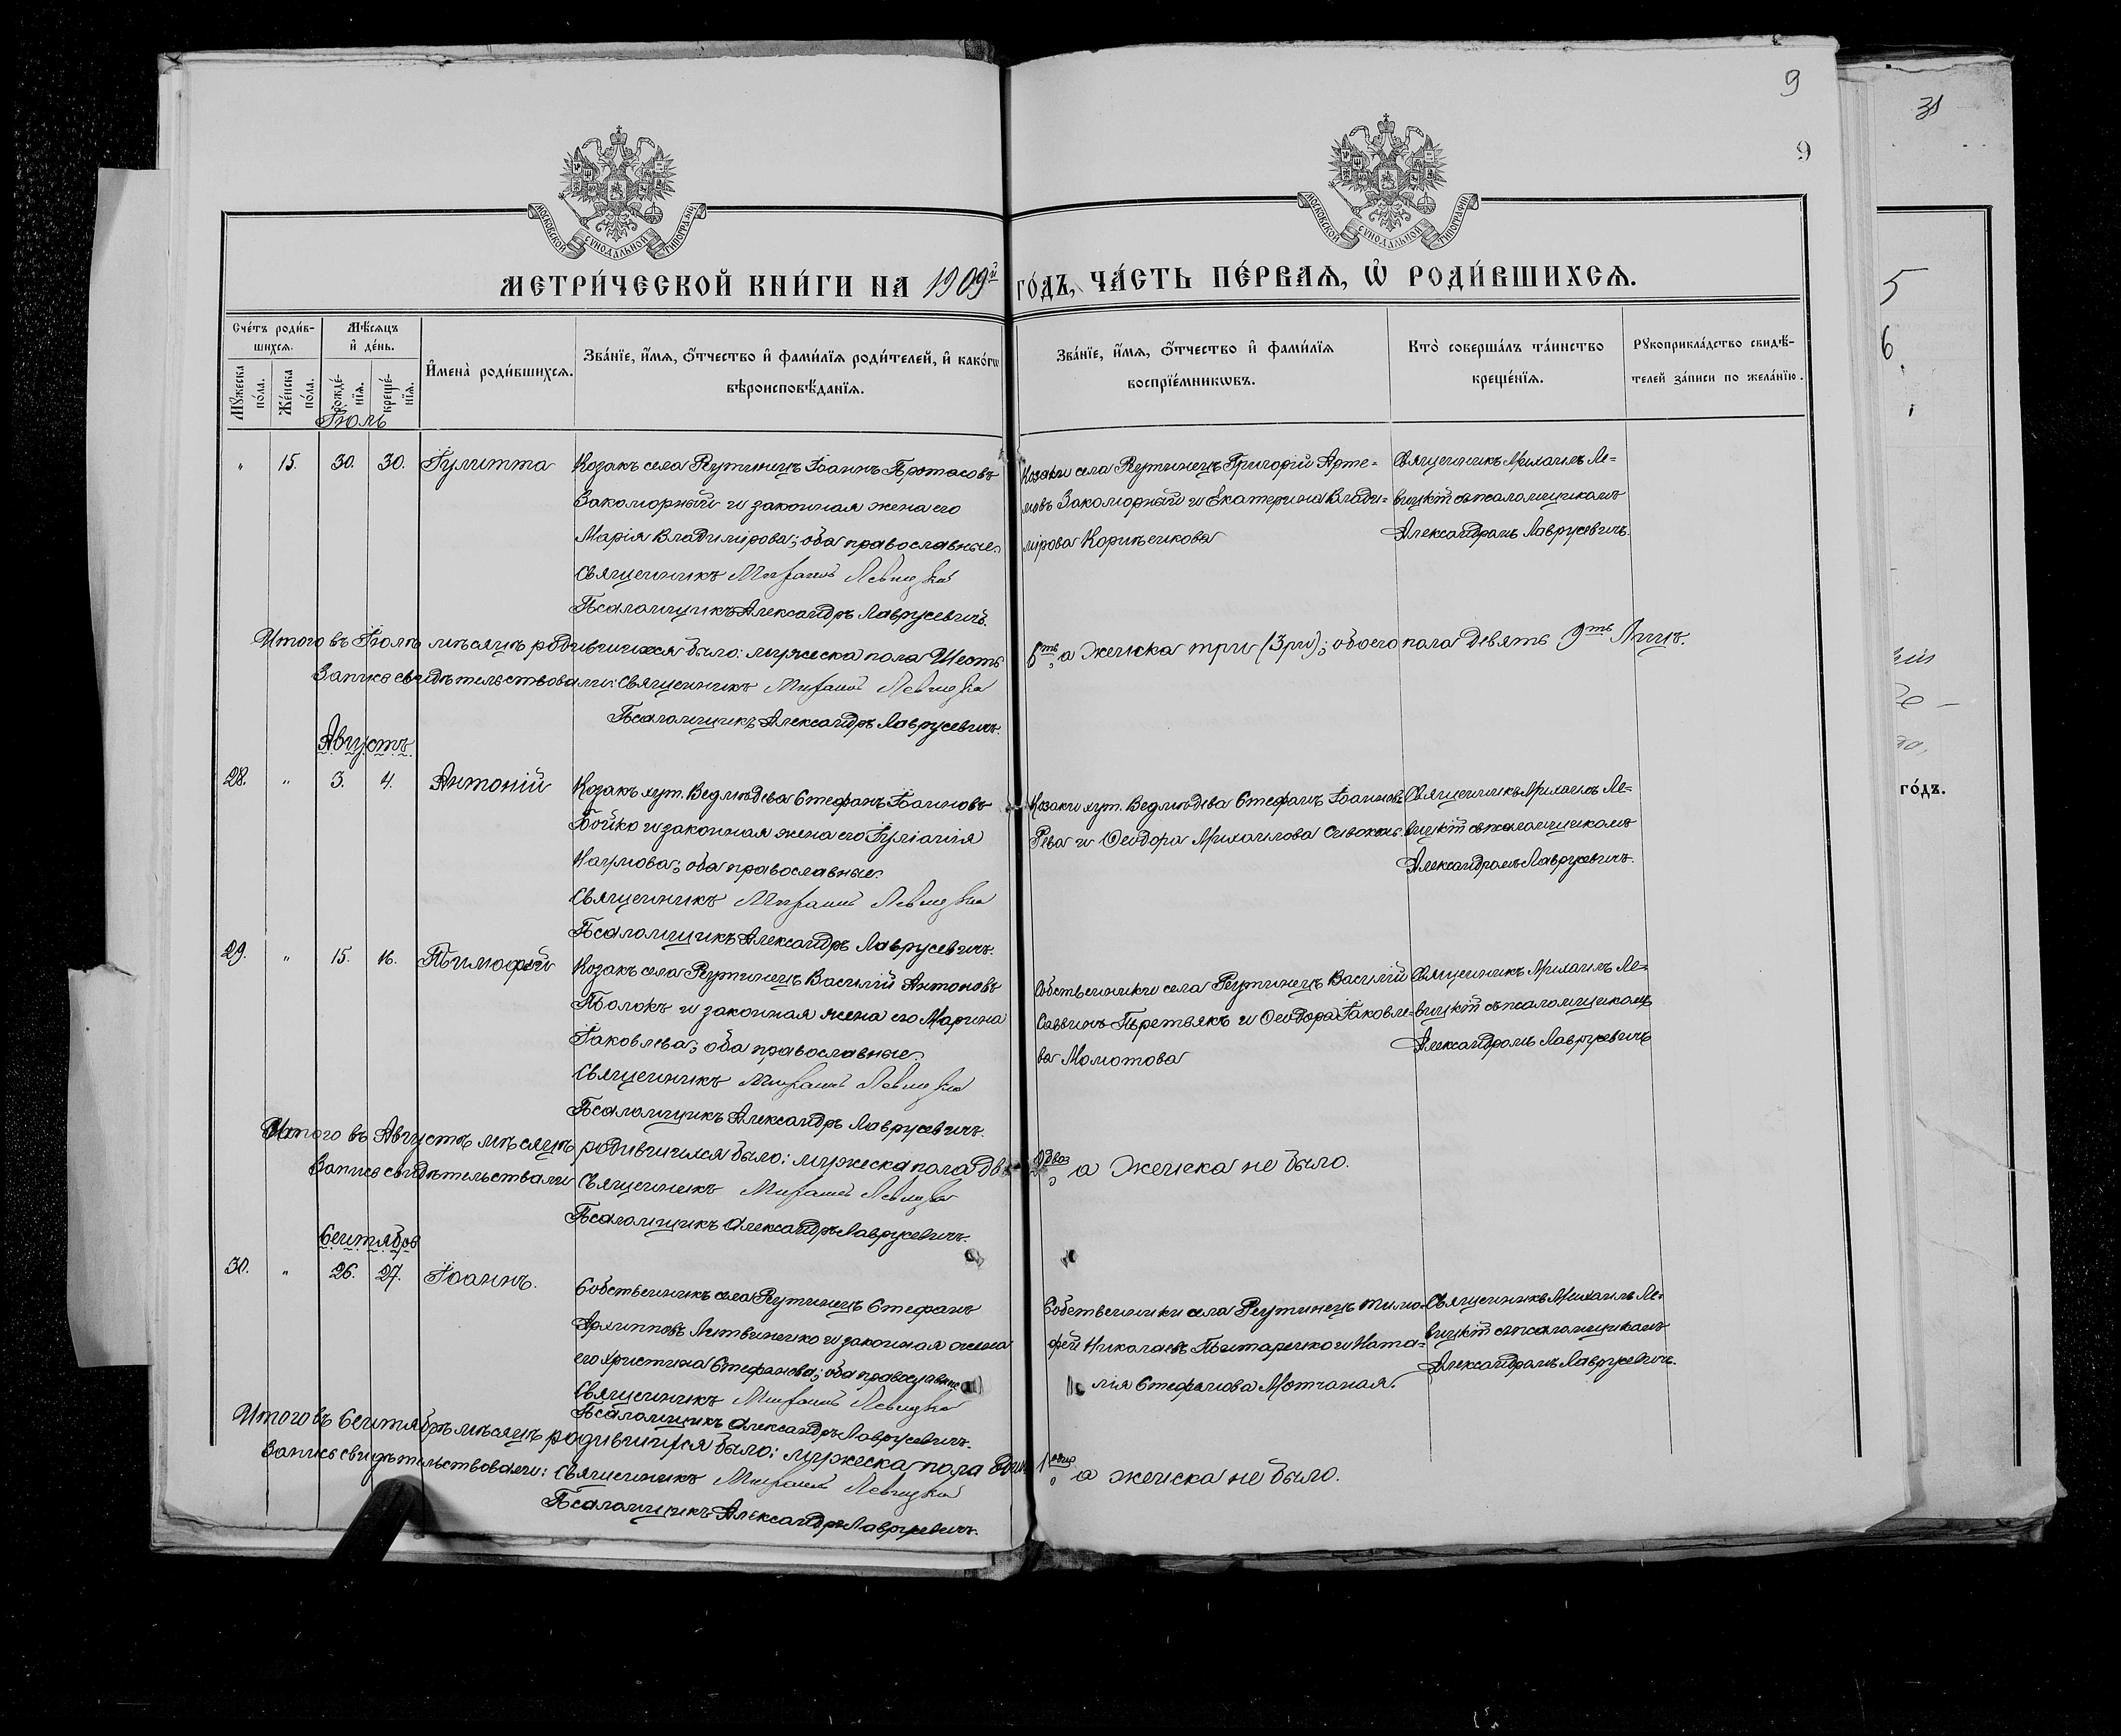 9
31
9
МОСКОВСКОЙ СѴНОДАЛЬНОЙ ТИПОГРАФІИ
МОСКОВСКОЙ СѴНОДАЛЬНОЙ ТИПОГРАФІИ
МЕТРИ́ЧЕСКОЙ КНИ́ГИ НА 1909й ГО́ДЪ, ЧА́СТЬ ПЕ́РВАѦ, Ѡ҆ РОДИ́ВШИХСѦ.
Сче́тъ роди́в-
шихсѧ.
Мꙋ́жеска по́ла.
Же́нска по́ла.
Мѣ́сѧцъ
и҆ де́нь.
рожде́-
нїѧ.
креще́-
нїѧ.
И҆мена̀ роди́вшихсѧ.
Зва́нїе, и҆́мѧ, ѻ҆́тчество и҆ фами́лїѧ роди́телей, и҆ како́гѡ
вѣроисповѣ́данїѧ.
Зва́нїе, и҆́мѧ, ѻ҆́тчество и҆ фами́лїѧ
воспрїе́мникѡвъ.
Кто̀ соверша́лъ та́инство
креще́нїѧ.
Рꙋкоприкла́дство свидѣ́-
телей за́писи по жела́нїю.
Іюль
" 15. 30. 30. Іулитта
Козакъ села Реутинецъ Іоаннъ Протасовъ
Закоморный и законная жена его
Марія Владимірова; оба православные.
Священникъ Михаилъ Левицкій
Псаломщикъ Александръ Лаврусевичъ.
Козаки села Реутинецъ Григорій Арте=
мовъ Закоморный и Екатерина Влади=
мірова
Священникъ Михаилъ Ле=
вицкій съ псаломщикомъ
Александромъ Лаврусевичъ.
Итого въ Іюлѣ мѣсяцѣ родившихся было: мужеска пола Шесть 6ть, а женска три (3ри); обоего пола девять 9ть лицъ.
Запись свидѣтельствовали: Священникъ Михаилъ Левицкій
Псаломщикъ Александръ Лаврусевичъ.
Августъ
28. " 3. 4. Антоній
Козакъ хут. Ведмедева Стефанъ Іоанновъ
Бойко и законная жена его Іуліанія
Наумова; оба православные.
Священникъ Михаилъ Левицкій
Псаломщикъ Александръ Лаврусевичъ.
Козаки хут. Ведмедева Стефанъ Іоанновъ
Рева и Ѳеодора Михаилова
Священникъ Михаилъ Ле=
вицкій съ псаломщикомъ
Александромъ Лаврусевичъ.
29. " 15. 16. Тимофей
Козакъ села Реутинецъ Василій Антоновъ
и законная жена его Марина
Іаковлева; оба православные.
Священникъ Михаилъ Левицкій
Псаломщикъ Александръ Лаврусевичъ.
Собственники села Реутинецъ Василій
Саввинъ Третьякъ и Ѳеодора Іаковле=
ва Момотова
Священникъ Михаилъ Ле=
вицкій съ псаломщикомъ
Александромъ Лаврусевичъ
Итого въ Августѣ мѣсяцѣ родившихся было: мужеска пола два 2два, а женска не было.
Запись свидѣтельствали Священникъ Михаилъ Левицкій
Псаломщикъ Александръ Лаврусевичъ.
Сентябрь
30. " 26. 27. Іоаннъ.
Собственникъ села Реутинецъ Стефанъ
Архипповъ Литвиненко и законная жена
его Христина Стефанова; оба православные
Священникъ Михаилъ Левицкій
Псаломщикъ Александръ Лаврусевичъ.
Собственники села Реутинецъ Тимо=
фей Николаевъ и Ната=
лія Стефанова
Священникъ Михаилъ Ле=
вицкій съ псаломщикомъ
Александромъ Лаврусевичъ.
Итого въ Сентябрѣ мѣсяцѣ родившихся было: мужеска пола одинъ 1одинъ, а женска не было.
Запись свидѣтельствовали: Священникъ Михаилъ Левицкій
Псаломщикъ Александръ Лаврусевичъ.
5
6.
го́дъ.